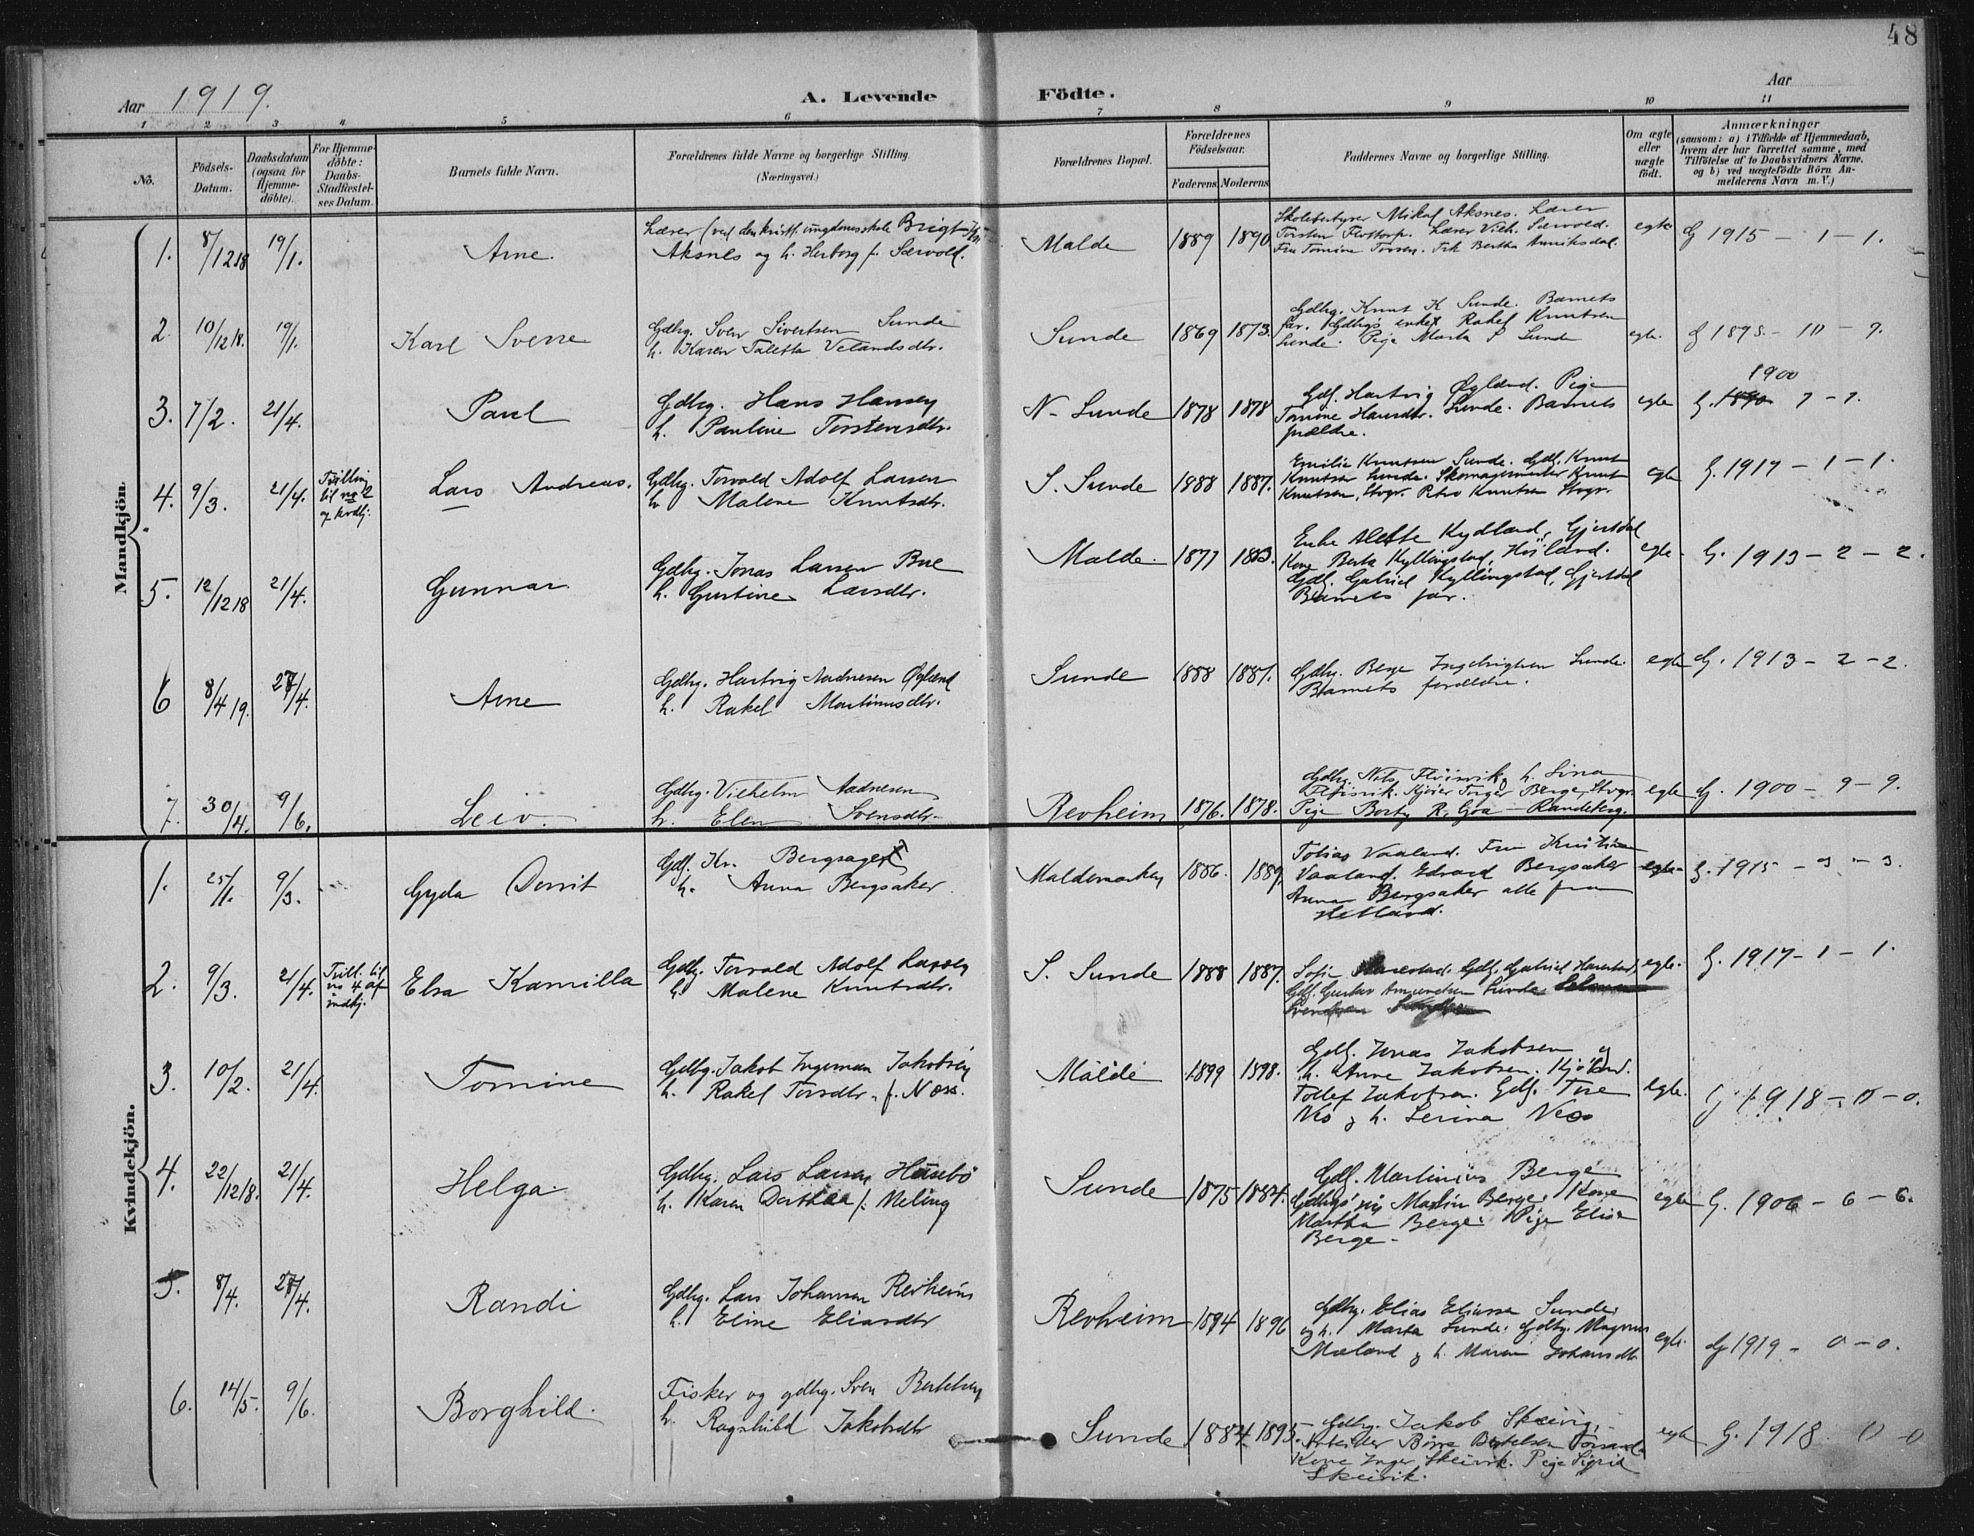 48
Aar 1919.
A. Levende
Födte.
Aar
1 2 3 4 5 6 7 8 9 10 11
No.
Födsels-Datum.
Daabsdatum (ogsaa for Hjemme-döbte).
For Hjemme-döbte: Daabs-Stadfæstel-ses Datum.
Barnets fulde Navn.
Forældrenes fulde Navne og borgerlige Stilling.
(Næringsvei.)
Forældrenes Bopæl.
Forældrenes Födselsaar.
Faderens Moderens
Faddernes Navne og borgerlige Stilling.
Om ægte eller uægte födt.
Anmærkninger
(saasom: a) i Tilfælde af Hjemmedaab, hvem der har forrettet samme, med Tilföielse af to Daabsvidners Navne, og b) ved uægtefödte Börn An-melderens Navn m. V.)
Mandkjön.
1. 8/12 18 19/1. Arne.
Lærer (ved den kristl. ungdomsskole Brigt
Aksnes og h. Herborg f. Særvold.
Malde 1889 1890
Skolebestyrer Mikal Aksnes. Lærer
Torsten Lærer Vilh. Særvold.
Fru Tomine Frk Bertha
egte G 1915 - 1 - 1.
2. 10/12 18. 19/1. Karl Sverre
Gdbg. Sven Sivertsen Sunde
h. Karen Taletta Velandsdtr.
Sunde 1869 1873.
Gdbg. Knut K Sunde. Barnets
far. Gdbgs enke Rakel Knutsen
Sunde. Pige Marta S Sunde
egte. G 1898 - 10 - 9.
3. 7/2. 21/4. Paul
Gdbg. Hans Hansen
h. Pauline Torstensdtr.
N- Sunde 1878 1878
Gdf. Hartvig Øglænd. Pige
Tomine Hansdtr. Sunde. Barnets
forældre.
egte 1900
G. 1890 7 - 7.
4. 9/3. 21/4. Tvilling til no 2 af kvdkj.
Lars Andreas.
Gdbg. Torvald Adolf Larsen
h. Malene Knutsdtr.
S. Sunde 1888 1887.
Emilie Knutsen Sunde. Gdf. Knut
Knutsen Sunde. Skomagermester Knut
Knutsen, Stvgr. Knutsen Stvgr.
egte G. 1917 - 1 - 1.
5. 12/12 18 21/4. Gunnar
Gdbg. Jonas Larsen Bue
h. Gurine Larsdtr.
Malde 1877 1883.
Enke Alette Kydland, Gjestdal
Kone Berta Kyllingstad, Høiland.
Gdf. Gabriel Kyllingstad, Gjestdal
Barnets far.
egte. G. 1913 - 2 - 2.
6 8/4 19. 27/4. Arne
Gdbg. Hartvig Aadnesen Øglænd
h. Rakel Martinusdtr.
Sunde 1888 1887.
Gdbg. Berge Ingebrigtsen Sunde.
Barnets forældre.
egte G. 1913 - 2 - 2.
7. 30/4. 9/6. Leiv.
Gdbg. Vilhelm Aadnesen
h. Elen Svensdtr.
Revheim 1876. 1878.
Gdbg. Nils h. Lina
Inger Berge, Stvgr.
Pige R. Goa - Randeberg.
egte G. 1900 - 9 - 9.
Kvindekjön.
1. 25/1. 9/3. Gyda Dorrit
Gdf. Kr. Bergsager
h. Anna Bergsaker
Maldemarken 1886. 1889.
Tobias Vaaland. Fru Kristine
Vaaland. Edvard Bergsaker
Anna Bergsaker alle fra
Hetland.
egte. G. 1915 - 3 - 3.
2. 9/3. 21/4. Tvill. til no 4 af mdkj.
Elsa Kamilla
Gdbg. Torvald Adolf Larsen
h. Malene Knutsdtr.
S. Sunde 1888 1887.
Sofie Harestad. Gdf. Gabriel Harestad,
Gdf. Gustav Amundsen Sunde.
egte. G. 1917 - 1 - 1.
3. 10/2. 21/4. Tomine
Gdbg. Jakob Ingeman Jakobsen
h. Rakel Torsdtr. f. Næss.
Malde 1899 1898.
Gdf. Jonas Jakobsen og
h. Anne Jakobsen.
Tollef Jakobsen. Gdf. Tore
Næs og h. Serina Næss
egte. G 1918 - 0 - 0.
4. 22/12 18. 21/4. Helga.
Gdbg. Lars Larsen Husebø
h. Karen Dorthea f. Meling
Sunde 1875 1884.
Gdf. Martinius Berge
Martin Berge. Kone
Martha Berge. Pige Elise
Berge.
egte G. 1906 - 6 - 6.
5. 8/4. 27/4. Randi
Gdbg. Lars Johansen Revheim
h. Eline Eliasdtr
Revheim 1894 1896
Gdbg. Elias Eliassen Sunde
og h. Marta Sunde. Gdbg. Magnus
Mæland og h. Maren Johansdtr
egte. G 1919 - 0 - 0.
6. 14/5. 9/6. Borghild.
Fisker og gdbg. Sven Bertelsen
h. Ragnhild Jakobsdtr
Sunde 1884. 1895.
Gdbg. Jakob Skeivig,
Arbeider Børre Bertelsen
Kone Inger Skeivik. Pige Sigrid
Skeivik.
egte G. 1918 0 - 0